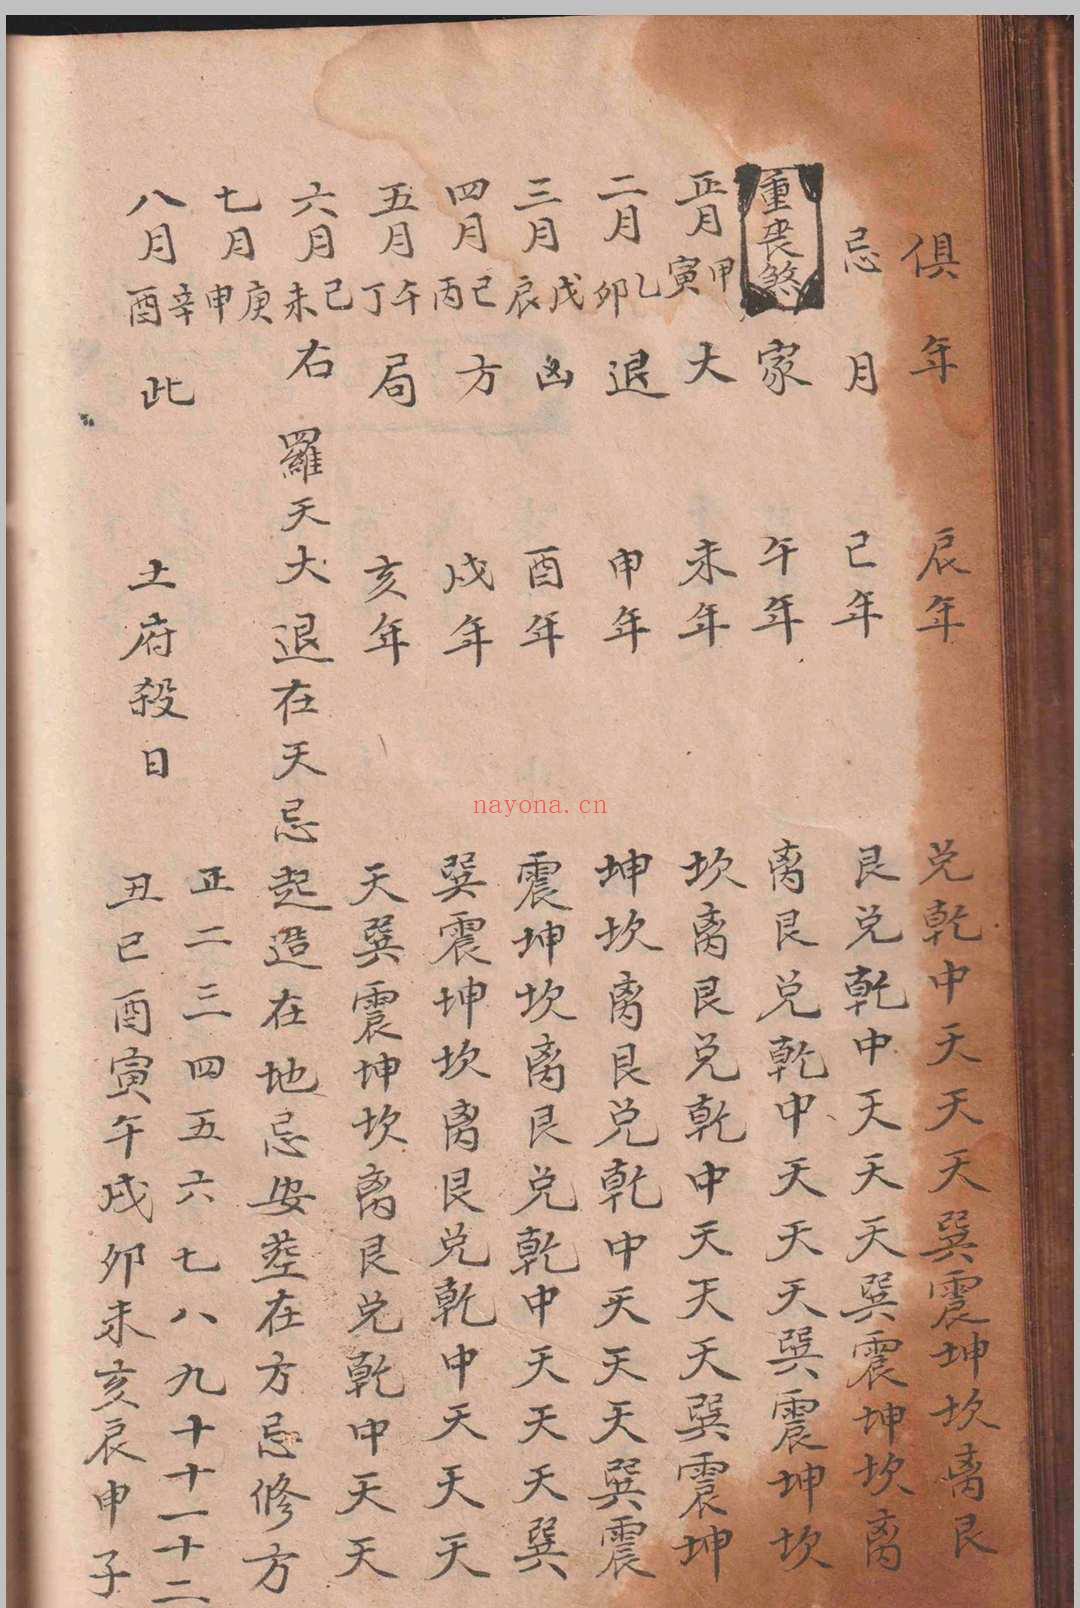 俱年 辰年 兑乾中天天天巽震坤坎离艮
忌月 巳年 艮兑乾中天天天巽震坤坎离
重丧煞 家 午年 离艮兑乾中天天天巽震坤坎
正月 甲寅 大 未年 坎离艮兑乾中天天天巽震坤
二月 乙卯 退 申年 坤坎离艮兑乾中天天天巽震
三月 戊辰 凶 酉年 震坤坎离艮兑乾中天天天巽
四月 己丙 方 戌年 巽震坤坎离艮兑乾中天天天
五月 午丁 局 亥年 天巽震坤坎离艮兑乾中天天
六月 己未 右 羅天大退在天忌起造在地忌安葬在方忌修方
七月 庚申 正二三四五六七八九十十一十二
八月 辛酉 此 土府殺日 丑巳酉寅午戌卯未亥辰申子
nayona.cn